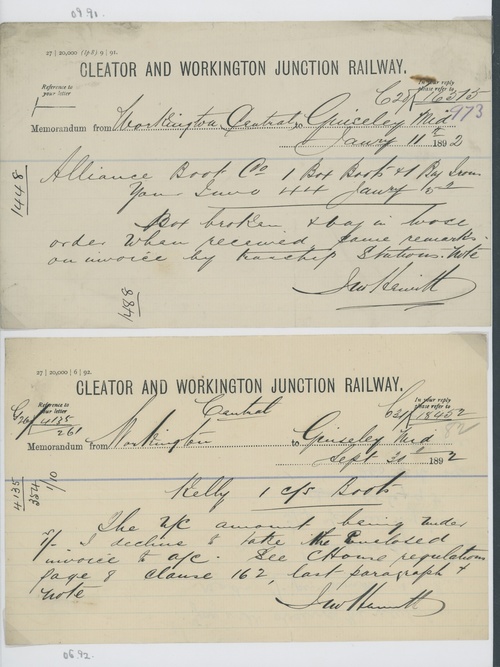 09.91.
27 | 20,000 (1p8) 9 | 91.
CLEATOR AND WORKINGTON JUNCTION RAILWAY.
Reference to your letter
In your reply please refer to
C28/16575
973
Memorandum from Workington Central to Guiseley Mid
Janry 11th 1892
Alliance Boot Coo 1 Box Boots & 1 Bag
Your Invo 44 Janry
1448
Box broken & bag in loose
order when received. Same remarks
on invoice by tranship Stations. Note
1488
Jno Hewitt
27 | 20,000 | 6 | 92.
CLEATOR AND WORKINGTON JUNCTION RAILWAY.
Reference to your letter
4135
261
In your reply please refer to
18402
Central
Memorandum from Workington to Guiseley Mid
Sept 30 1892
4135
354
1/10
Kelly 1 c/s Boots
The U/C amount being under
5/- I decline to take the Enclosed
invoice to a/c. See CHouse regulations
page 8 clause 162, last paragraph &
note
Jno Hewitt
06.92.